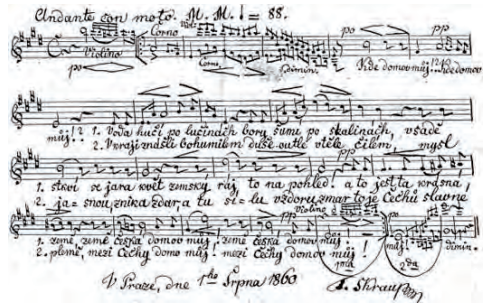 Andante con moto. M. M. ♩ = 88.
po Corno Viol: po pp
Violino Corno dimin. Kde domov můj!? Kde domov
po
můj!? 1. Voda hučí po lučinách bory šumí po skalinách, v sadě
2. V kraji znášli bohumilém duše outlé v těle čilém, mysl
pp
1. stkví se jara květ zemský ráj to na pohled! a to jest ta krásná,
2. ja=snou, znik a zdar, a tu sí=lu vzdoru zmar to je Čechů slavné
pp Violino po
1. země, země česká domov můj, země česká domov můj! můj! dimin.
2. plémě, mezi Čechy domo můj! mezi Čechy domov můj! 1ma 2da
V Praze, dne 1ho Srpna 1860